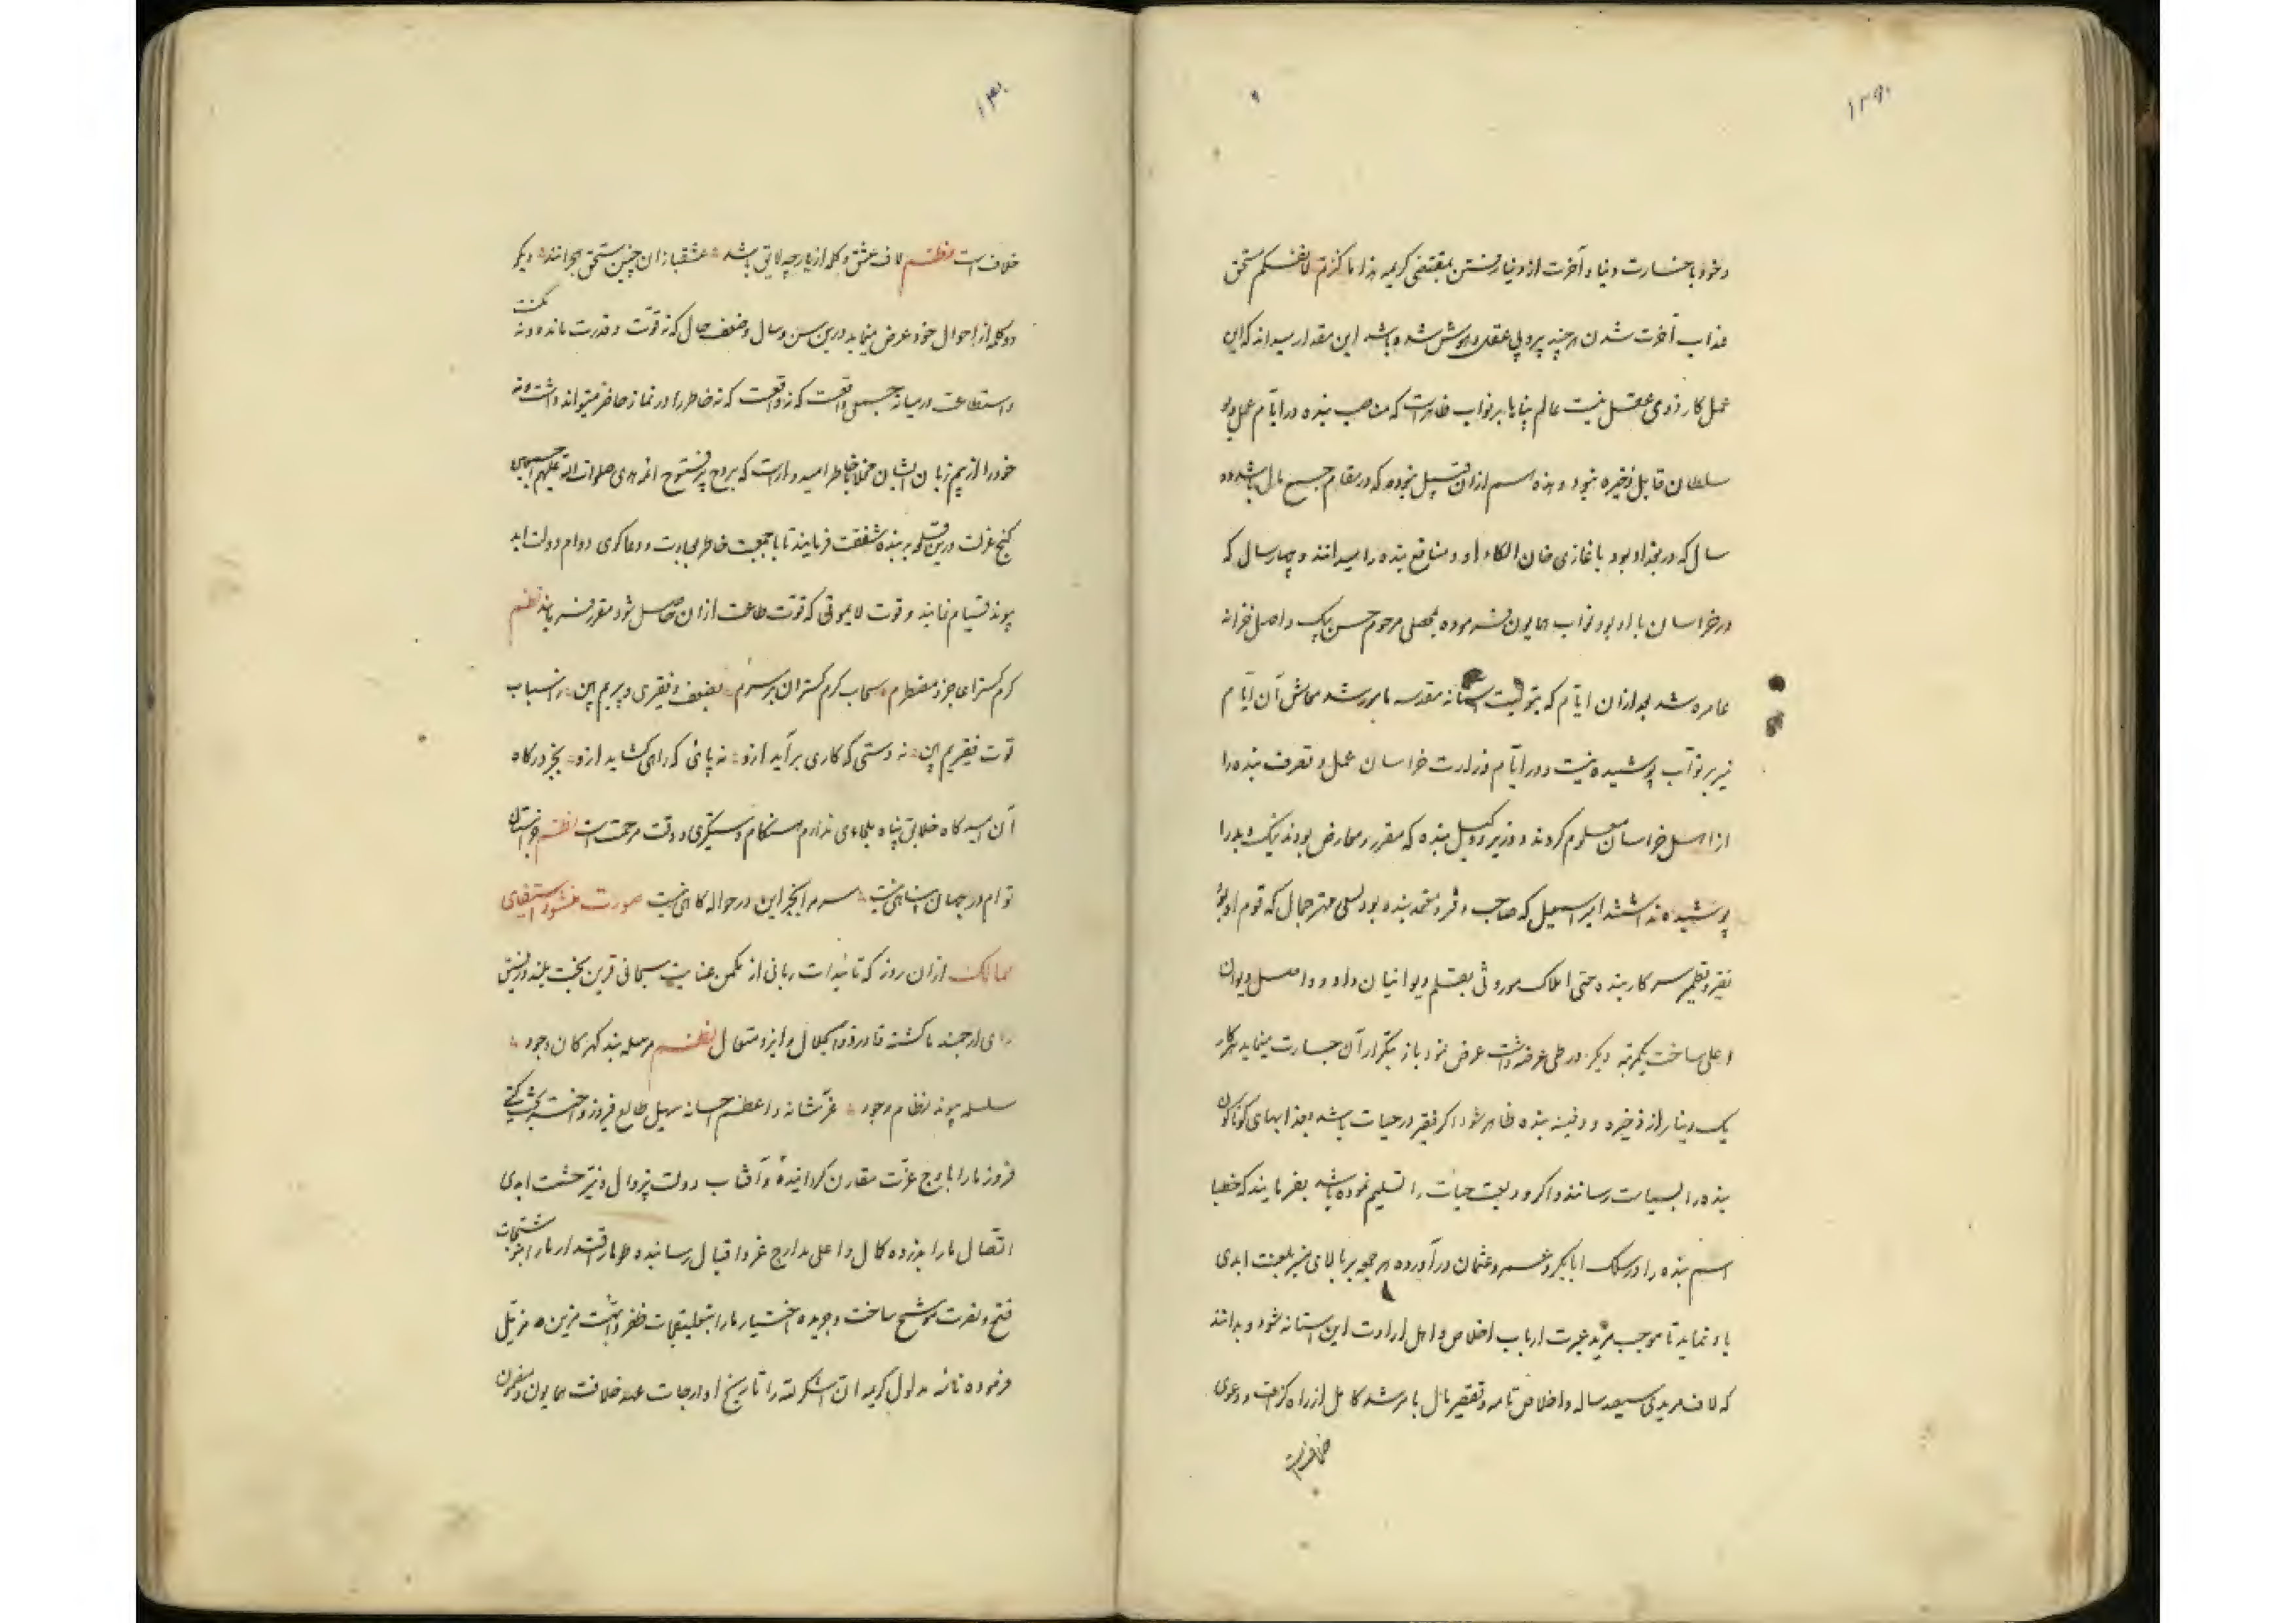 ۱۲۹
و خود با خسارت دنیا و آخرت از دنیا رفتن بمقتضی کریمه هذا ما کنزتم لانفسکم مستحق
عذاب آخرت شدن هر چند پر و بی عقل و هوش شده باشد این مقدار میداند که این
عمل کار ذوی عقل نیست عالم پناها بر نواب ظاهر است که مناصب بنده در ایام عمل
سلطان قابل ذخیره نبود و بنده هم از آن قبیل نبوده که در مقام جمع مال باشد دو
سال که در بغداد بود با غازی خان الکاء او و منافع بنده را میدانند و چهار سال که
در خراسان با او بود نواب همایون فرموده بمحصلی مرحوم حسن بیک داخل خزانه
عامره شد بعد از آن ایام که بتولیت آستانه مقدسه مامور شد معاش آن ایام
نیز بر نواب پوشیده نیست و در ایام وزارت خراسان عمل و تصرف بنده را
از اهل خراسان معلوم کردند و وزیر و وکیل بنده که مقرر و معارض بودند نیک و بد را
پوشیده نداشتند امیر اسمعیل که صاحب و فرد معتمد بنده بود مهتر جمال که قوم او بود
نقیر و قطمیر سرکار بنده حتی املاک موروثی بقلم دیوانیان داد و داخل دیوان
اعلی ساخت یکمرتبه دیگر در طی عرضه داشت عرض نمود باز بتکرار آن جسارت مینماید هرگاه
یک دینار از ذخیره و دفینه بنده ظاهر شود اگر فقیر در حیات باشد بعذابهای گوناگون
بنده را بسیاست رسانند و اگر ودیعت حیات را تسلیم نموده باشد بفرمایند که خطبا
اسم بنده را در سلک ابابکر و عمر و عثمان در آورده هر جمعه بر بالای منبر بلعنت ابدی
یاد نماید تا موجب مزید عبرت ارباب اخلاص و اهل ارادت این آستانه شود و بدانند
که لاف مریدی سیصد ساله و اخلاص تامه و تقصیر مال با مرشد کامل از راه گزاف و دعوی
خلافست
۱۳۰
خلاف است نظم لاف عشق و گله از یار چه لایق باشد عشقبازان چنین مستحق هجرانند دیگر
دو کلمه از احوال خود عرض مینماید درین سن و سال و ضعف حال که نه قوت و قدرت مانده و نه مکنت
و استطاعت در میانه جمعی واقعست که نه خاطر را در نماز حاضر میتواند داشت و نه
خود را از بیم زبان ایشان خاطر امیدوارست که بروح پر فتوح ائمه هدی صلوات الله علیهم اجمعین
کنج عزلت درین قلعه بر بنده شفقت فرمایند تا با جمعیت خاطر بعبادت و دعاگوی دوام دولت ابد
پیوند قیام نماید و قوت لایموتی که قوت طاعت از آن حاصل شود مقرر فرمایند نظم
کرم گسترا عاجز و مضطرم سحاب کرم گستران بر سرم بضعف و فقیری و پیریم بین اسباب
قوت فقیریم بین نه دستی که کاری برآید ازو نه پائی که راهی گشاید ازو بجز درگاه
آن امیدگاه خلایق پناه ملجاءی ندارم هنگام دستگیری و وقت مرحمت است نظم جز آستان
توام در جهان پناهی نیست سر مرا بجز این در حواله گاهی نیست صورت منشور استیفای
ممالک از آن روز که تائیدات ربانی از مکمن عنایت سبحانی قرین بخت بلند و
رای ارجمند ما گشته قادر ذو الجلال و ایزد متعال نظم مرسله بند گهر کان وجود
سلسله پیوند نظام وجود عز شانه و اعظم احسانه سهیل طالع فیروز و اختر بخت گیتی
فروز ما را باوج عزت مقارن گردانیده و آفتاب دولت بیزوال و نیر حشمت ابدی
اتصال ما را بذروه کمال و اعلی مدارج عز و اقبال رسانیده طومار اقتدار ما را
فتح و نصرت موشح ساخت و جریده اختیار ما را بتعلیقات ظفر و مزین و مذیل
فرموده مدلول کریمه ان اشکر لله را تاریخ اوارجات عهد خلافت همایون و